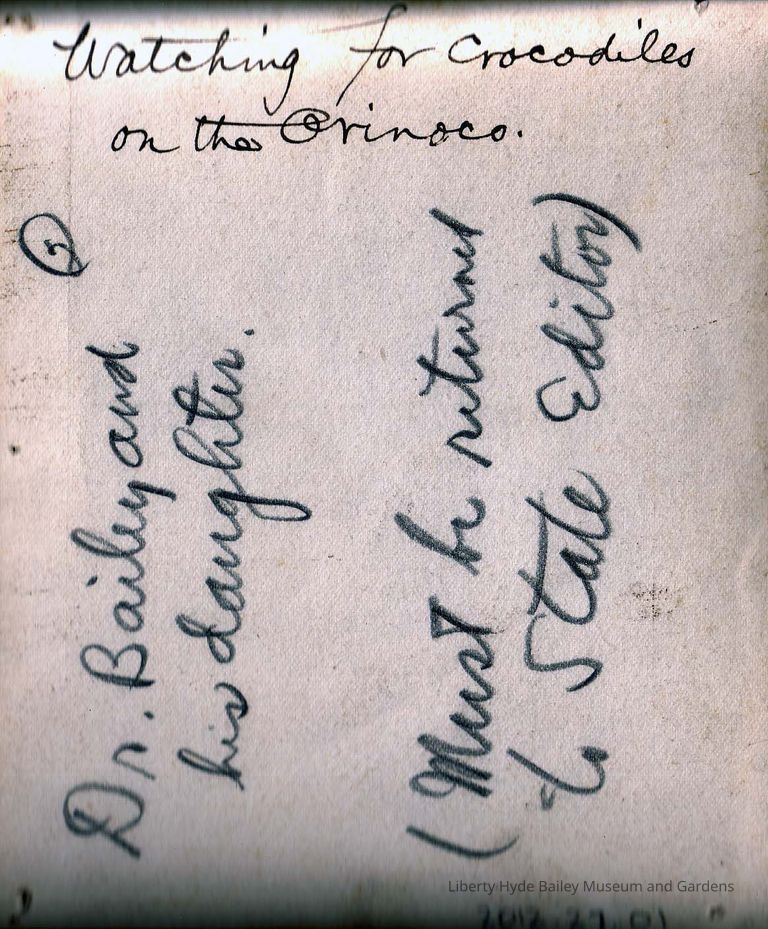 Watching for Crocodiles
on the Orinoco.
②
Dr. Bailey and
his daughter.
(Must be returned
to State Editor)
Liberty Hyde Bailey Museum and Gardens
2012.27.01